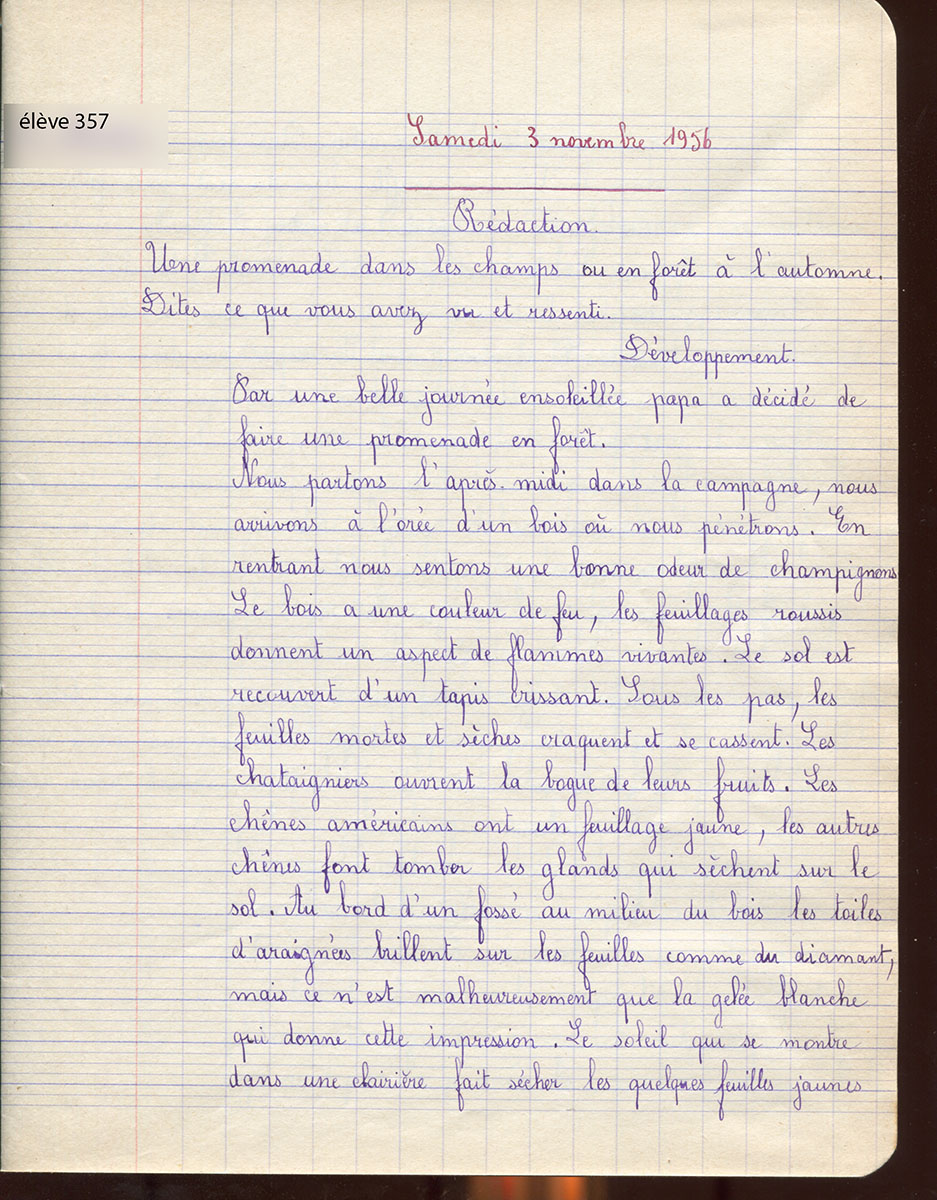 élève 357
Samedi 3 novembre 1956
Rédaction.
Une promenade dans les champs ou en forêt à l'automne.
Dites ce que vous avez vu et ressenti.
Développement.
Par une belle journée ensoleillée papa a décidé de
faire une promenade en forêt.
Nous partons l'après-midi dans la campagne, nous
arrivons à l'orée d'un bois où nous pénétrons. En
rentrant nous sentons une bonne odeur de champignons
Le bois a une couleur de feu, les feuillages roussis
donnent un aspect de flammes vivantes. Le sol est
recouvert d'un tapis crissant. Sous les pas, les
feuilles mortes et sèches craquent et se cassent. Les
chataigniers ouvrent la bogue de leurs fruits. Les
chênes américains ont un feuillage jaune, les autres
chênes font tomber les glands qui sèchent sur le
sol. Au bord d'un fossé au milieu du bois les toiles
d'araignées brillent sur les feuilles comme du diamant,
mais ce n'est malheureusement que la gelée blanche
qui donne cette impression. Le soleil qui se montre
dans une clairière fait sécher les quelques feuilles jaunes